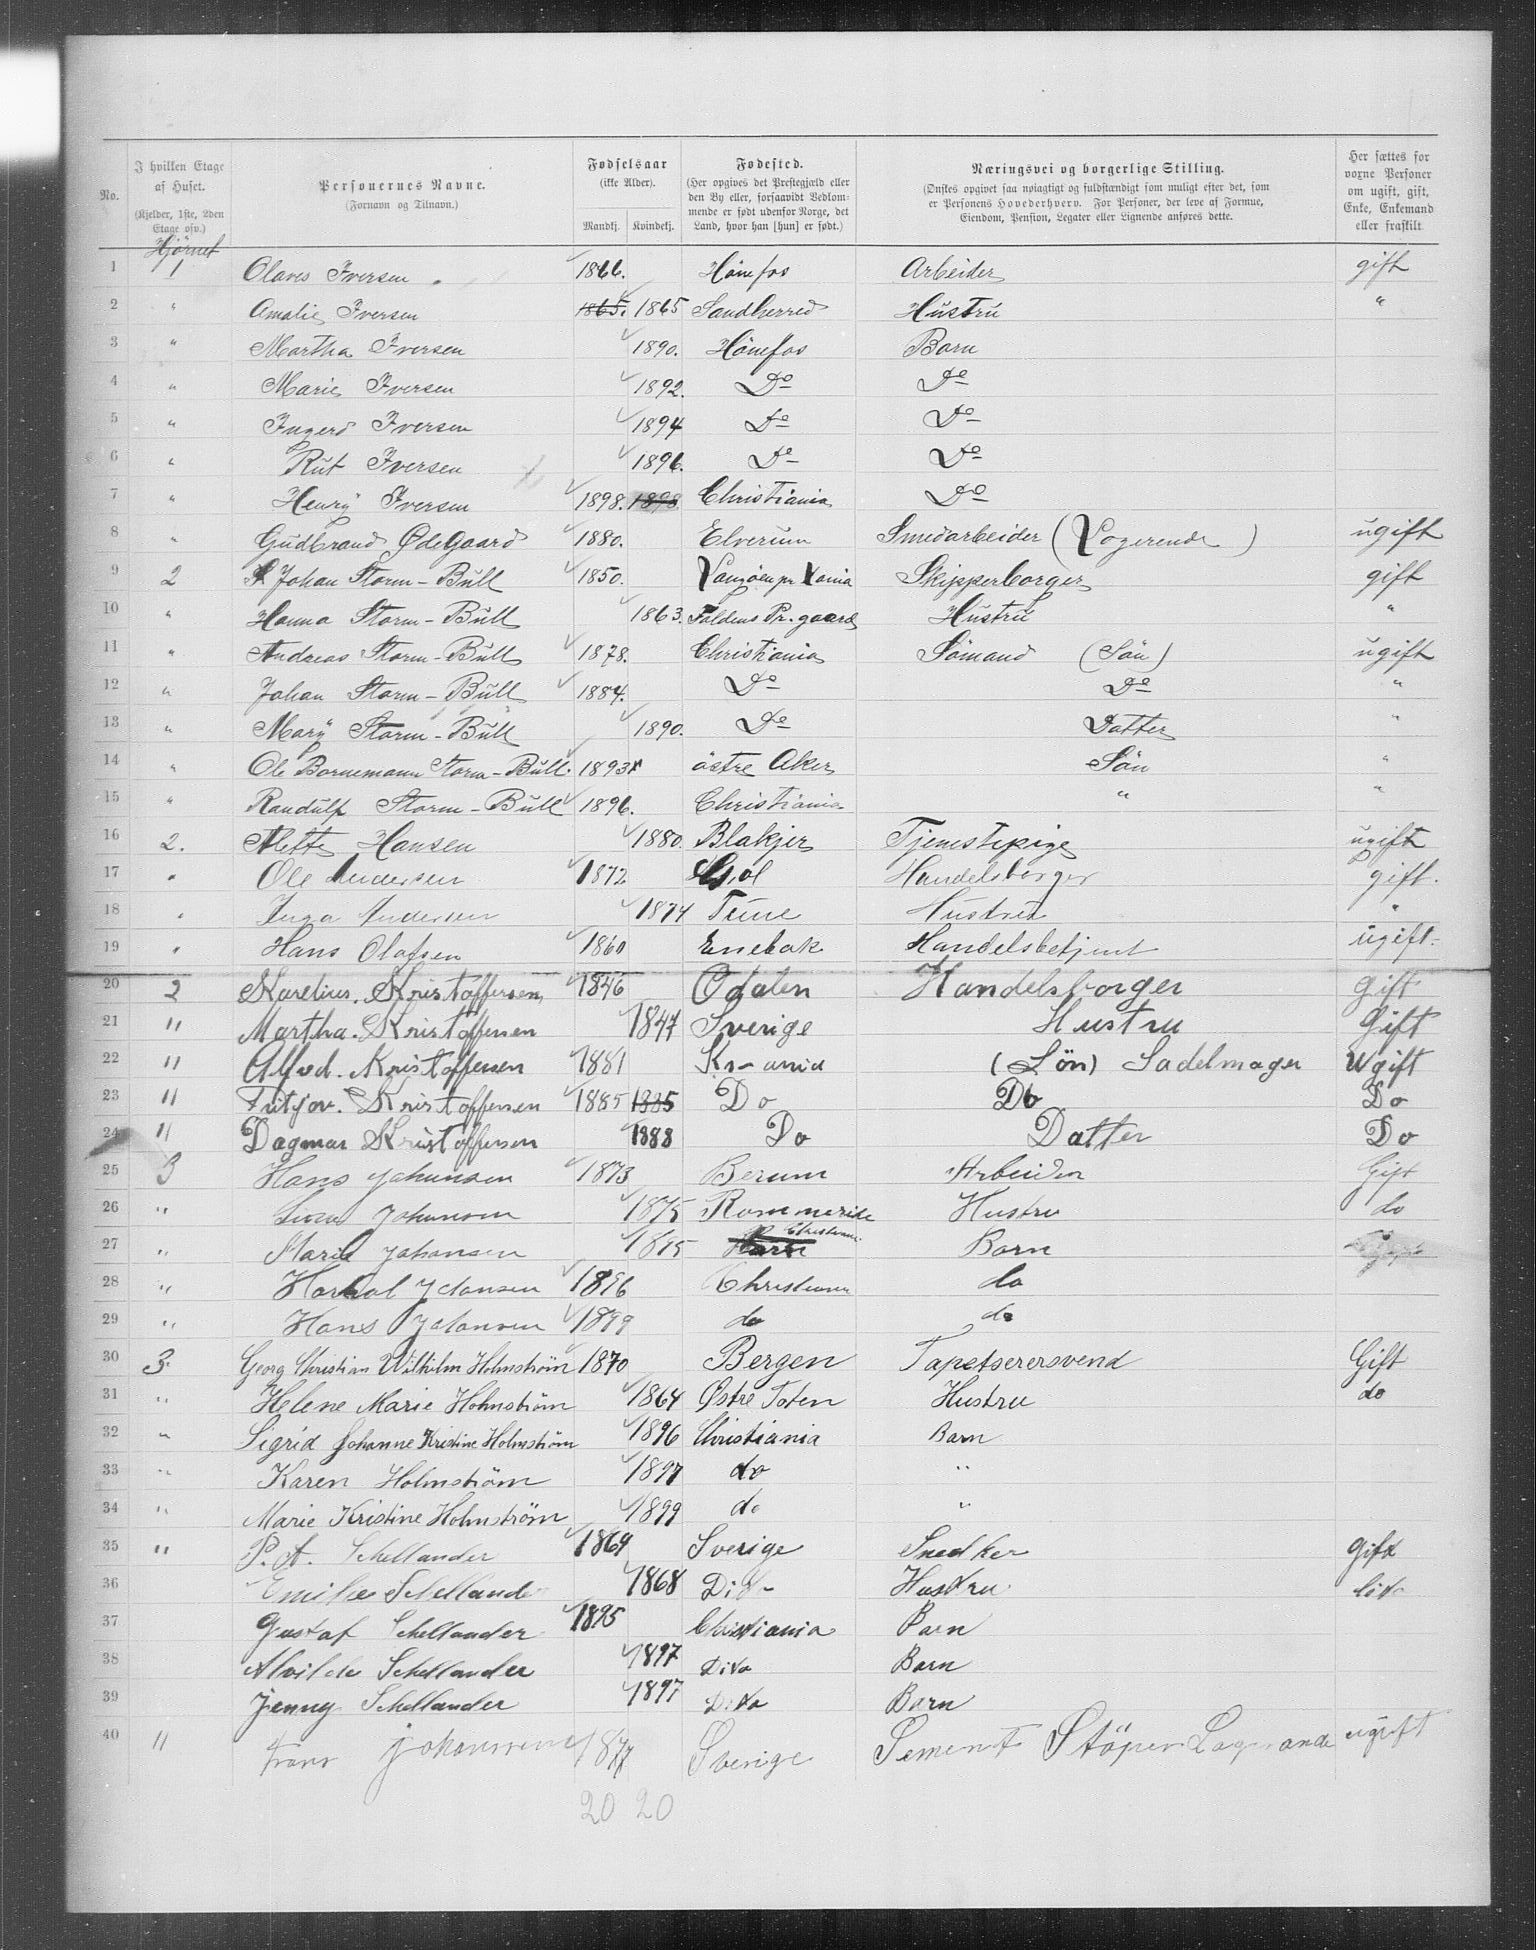 No. I hvilken Etage af Huset. (Kjelder, 1ste, 2den Etage osv.) Personernes Navne. (Fornavn og Tilnavn.) Fødselsaar (ikke Alder). Mandkj. Kvindekj. Fødested. (Her opgives det Prestegjæld eller den By eller, forsaavidt Vedkommende er født udenfor Norge, det Land, hvor han [hun] er født.) Næringsvei og borgerlige Stilling. (Ønskes opgivet saa nøiagtigt og fuldstændigt som muligt efter det, som er Personens Hovederhverv. For Personer, der leve af Formue, Eiendom, Pension, Legater eller Lignende anføres dette. Her sættes for voxne Personer om ugift, gift, Enke, Enkemand eller fraskilt
Hjørnet
1 1 Olaves Iversen 1866. Hönefos Arbeider gift
2 " Amalie Iversen 1865. 1865 Sandherred Hustru "
3 " Martha Iversen 1890. Hönefos Barn
4 " Marie Iversen 1892. Do Do
5 " Ingerd Iversen 1894 Do Do
6 " Rut Iversen 1896. Do Do
7 " Henry Iversen 1898. 1898 Christiania Do
8 " Gudbrand ØdeGaard 1880. Elverum Smedarbeider (Logerende) ugift
9 2 S. Johan Storm-Bull 1850. Skipperborger gift
10 " Hanna Storm-Bull 1863. Faldens Pr.gaard Hustru "
11 " Andreas Storm-Bull 1878. Christiania Sömand (Sön) ugift
12 " Johan Storm-Bull 1884. Do Do "
13 " Mary Storm-Bull 1890. Do Datter "
14 " Ole Bornemann Storm-Bull. 1893 östre Aker Sön "
15 " Randulf Storm-Bull 1896. Christiania " "
16 2. Mette Hansen 1880. Blakjer Tjenestepige ugift
17 " Ole Andersen 1872 Handelsborger gift.
18 " Inga Andersen 1874 Tune Hustru "
19 " Hans Olafsen 1860 Enebak Handelsbetjent ugift
20 2 Karelius. Kristoffersen 1846 Odalen Handelsborger gift
21 " Martha. Kristoffersen 1847 Sverige Hustru Gift
22 " Alfred. Kristoffersen 1881 Kr-ania (Sön) Sadelmager Ugift
23 " Fritjov. Kristoffersen 1885 1885 Do Do Do
24 " Dagmar Kristoffersen 1888 Do Datter Do
25 3 Hans Johansen 1873 Berum Arbeider Gift
26 " Johansen 1875 Rommerike Hustru do
27 " Marie Johansen 1895 Barn Christiania Barn
28 " Harhal Johansen 1896 Christiania do
29 " Hans Johansen 1899 do do
30 3. Georg Christian Wilhilm Holmström 1870 Bergen Tapetserersvend Gift
31 " Helene Marie Holmström 1864 Østre Toten Hustru do
32 " Sigrid Johanne Kristine Holmström 1896 Christiania Barn
33 " Karen Holmström 1897 do "
34 " Marie Kristine Holmström 1899 do "
35 " P. A. Schellander 1869 Sverige Snedker Gift
36 Emilie Schellande 1868 Dito Hustru dito
37 Gustaf Schellander 1895 Christiania Barn
38 Alvilde Schellander 1897 Dito Barn
39 Jenny Schellander 1897 Dito Barn
40 " Frans Johanssen 1877 Sverige Sement Stöper Logerande ugift
20 20